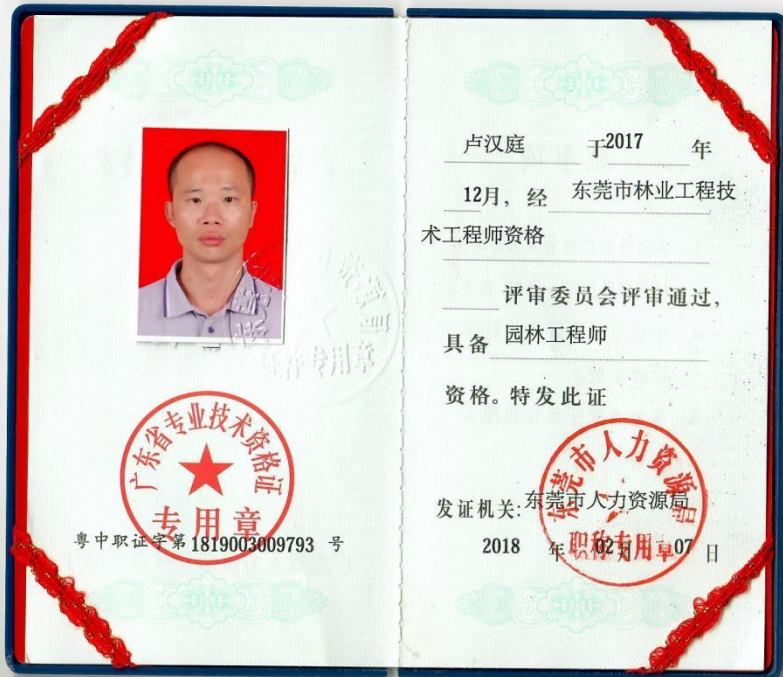 广东省专业技术资格证
专用章
粤中职证字第 1819003009793 号
卢汉庭 于2017 年
12月，经 东莞市林业工程技
术工程师资格
评审委员会评审通过，
具备 园林工程师
资格。特发此证
东莞市人力资源局
职称专用章
发证机关:东莞市人力资源局
2018 年 02月 07日